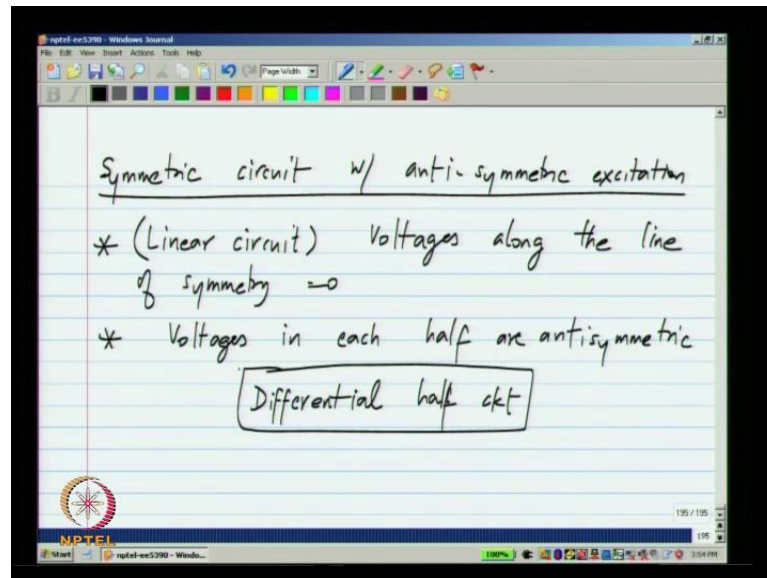 nptel-ee5390 - Windows Journal
File Edit View Insert Actions Tools Help
Page Width
B I
Symmetric circuit w/ anti-symmetric excitation
* (Linear circuit) Voltages along the line
of symmetry = 0
* Voltages in each half are antisymmetric
Differential half ckt
195 / 195
195
NPTEL
Start nptel-ee5390 - Windo... 100% 3:54 PM